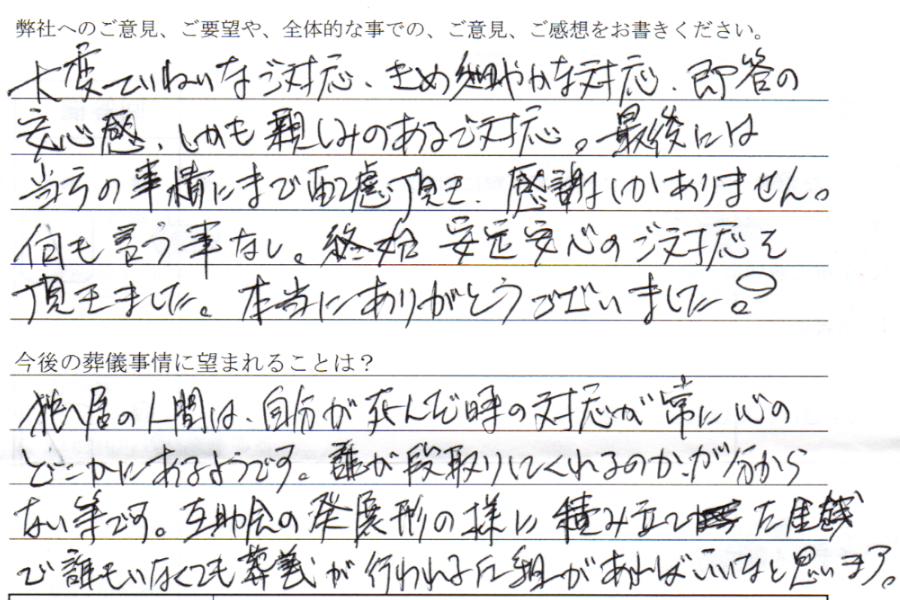 弊社へのご意見、ご要望や、全体的な事での、ご意見、ご感想をお書きください。
大変ていねいなご対応、きめ細やかな対応、即答の
安心感、しかも親しみのあるご対応。最後には
当方の事情にまで配慮頂き、感謝しかありません。
何も言う事なし。終始安定安心のご対応を
頂きました。本当にありがとうございました。
今後の葬儀事情に望まれることは？
独居の人間は、自分が死んだ時の対応が常に心の
どこかにあるようです。誰が段取りしてくれるのか、が分から
ない等です。互助会の発展形の様に積み立てた金銭
で誰もいなくても葬義が行われる仕組があればいいなと思います。